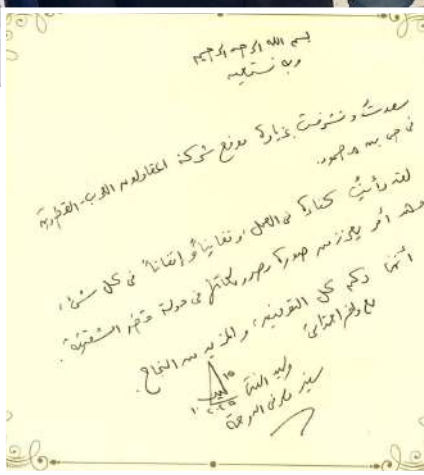 بسم الله الرحمن الرحيم
وبه نستعين
سعدتُ وتشرفت بزيارة موقع شركة المقاولون العرب - القطرية
في
لقد رأيتُ كفاءة في العمل، وتفانياً وإتقاناً في كل شيء،
وهذا أمر يعزز من صورة مصر ومكانتها في دولة قطر الشقيقة.
أتمنى لكم كل التوفيق، والمزيد من النجاح.
مع وافر احترامي
وليد
سفير مصر في الدوحة